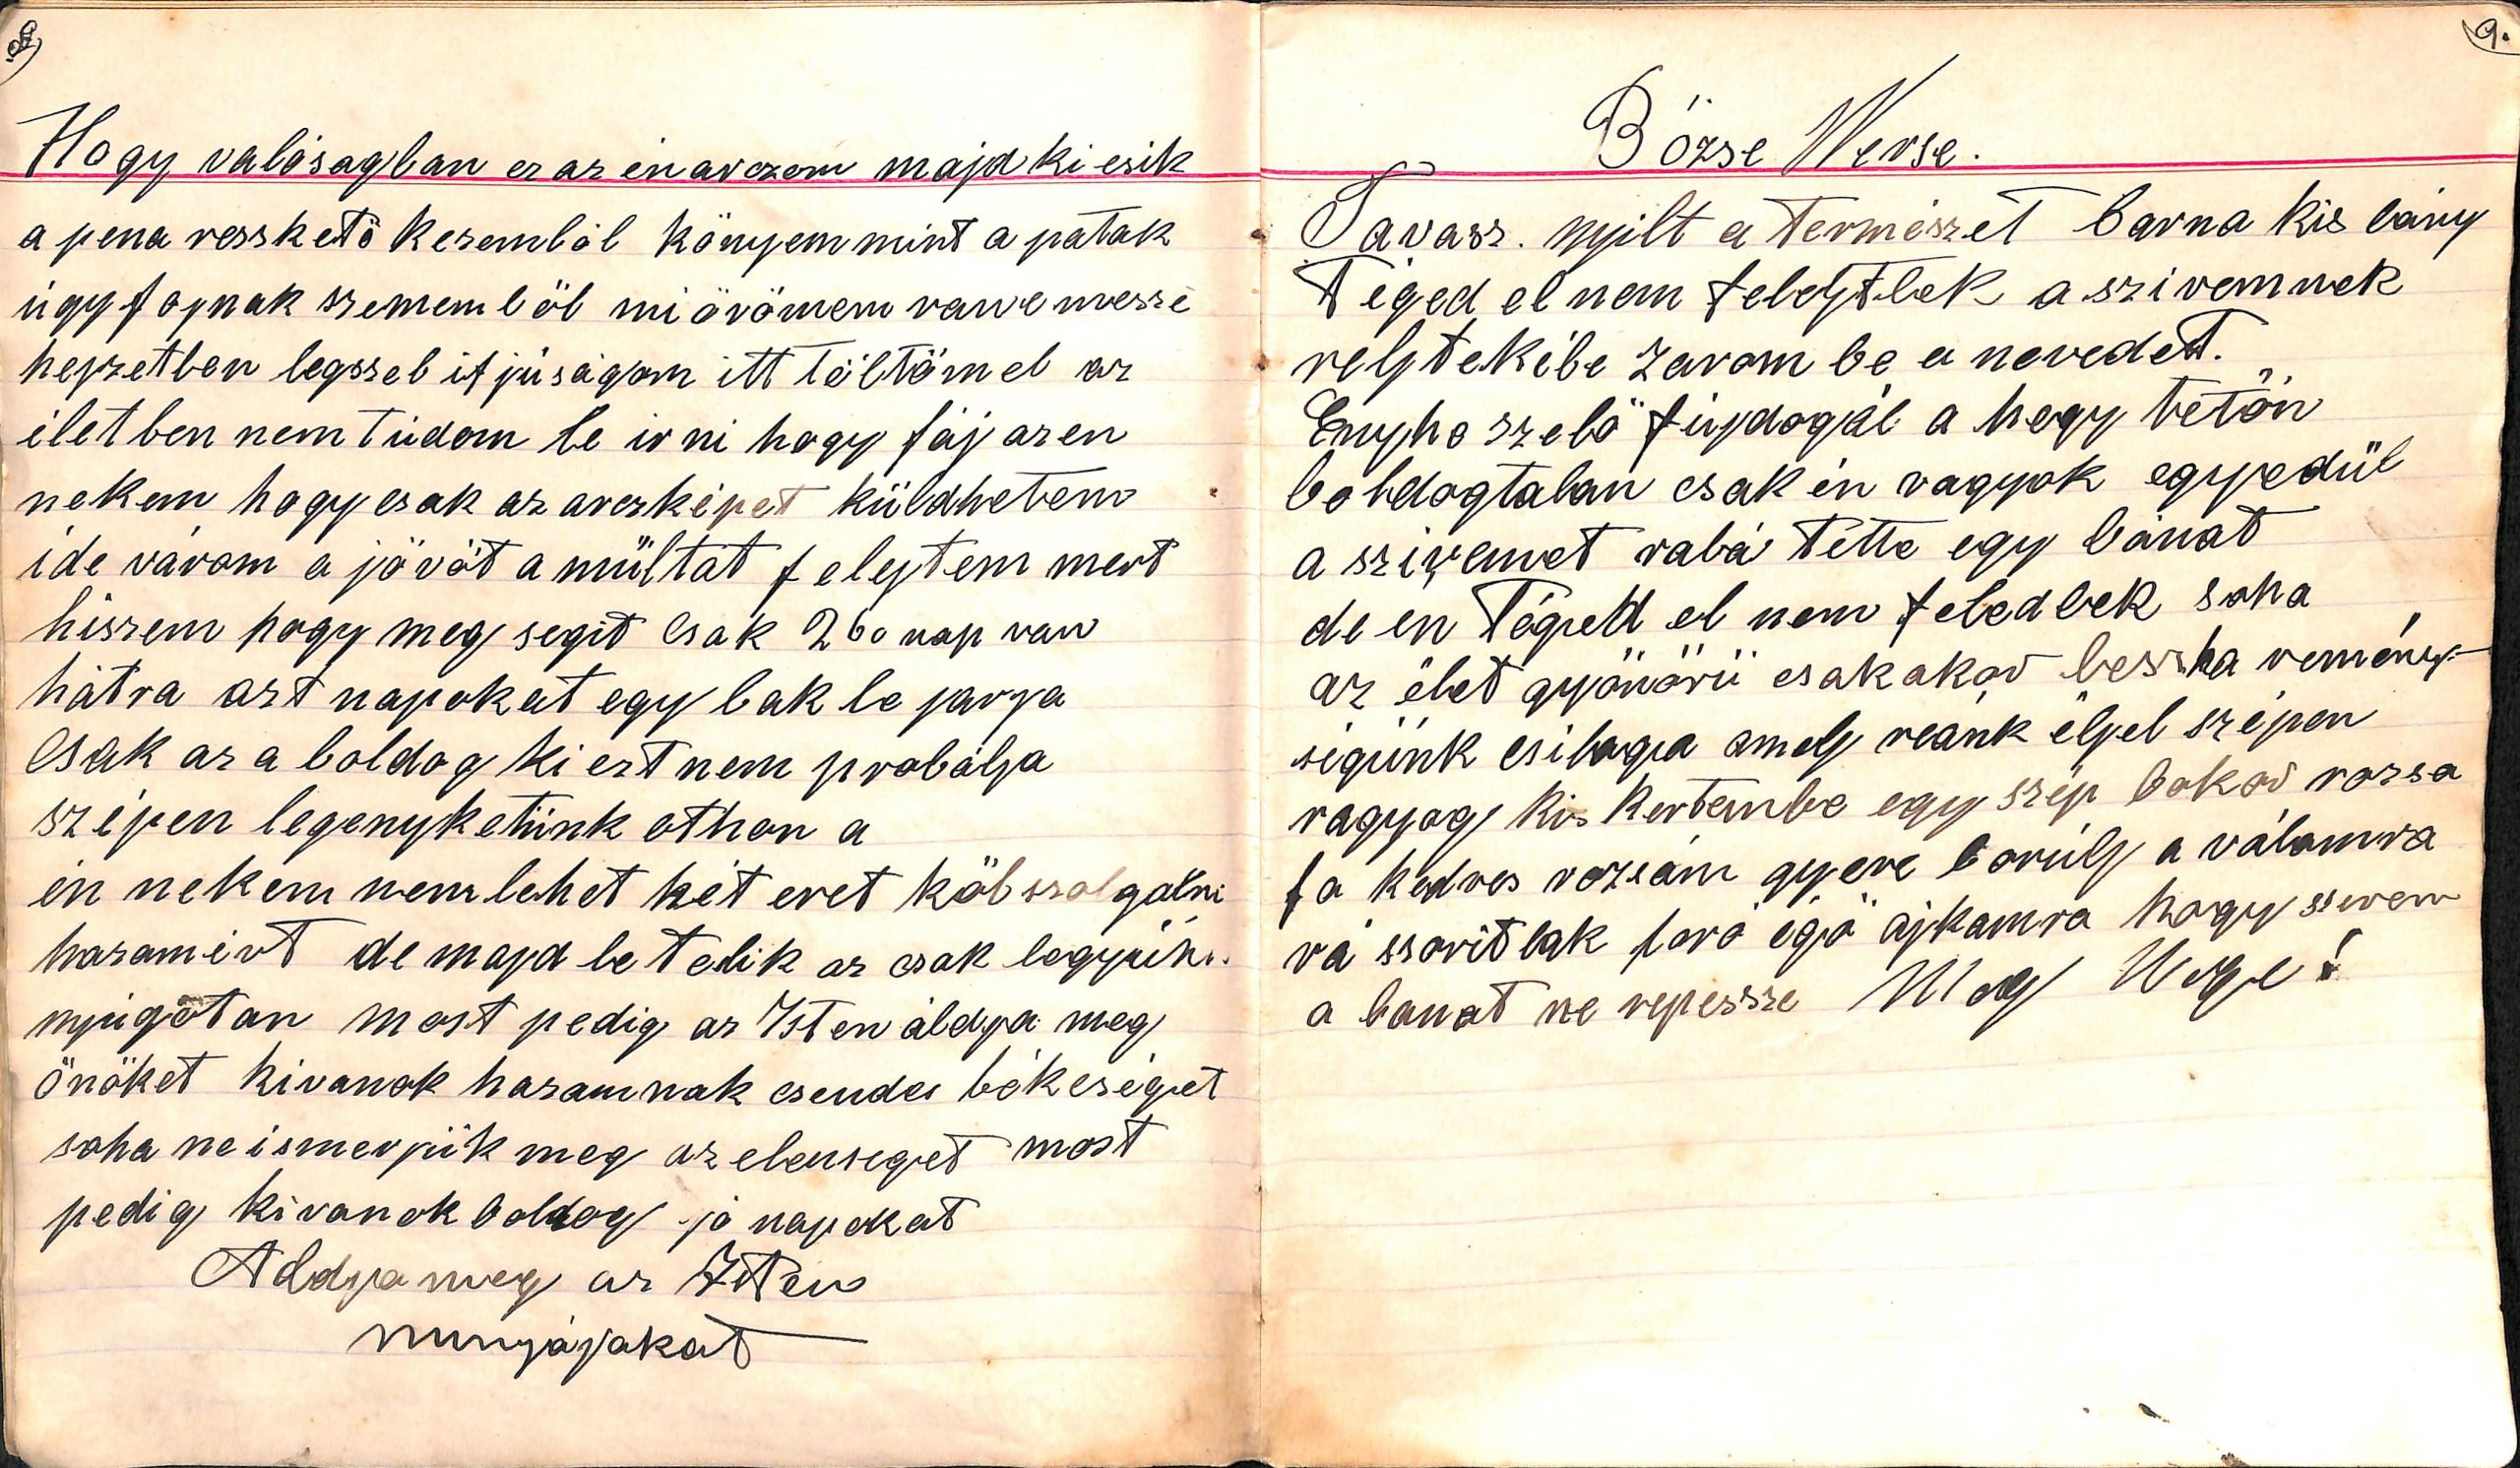 8.
Hogy valósagban ez az én arczom majd ki esik
a pena resskető kezemből könyem mint a patak
úgy fojnak szememből mi örömem van e messze
hejzetben legsseb ifjúságom itt töltöm el az
életben nem tudom le irni hogy fáj az en
nekem hogy csak az arczképet küldhetem
ide várom a jövöt a múltat felejtem mert
hiszem hogy meg segit csak 260 nap van
hátra azt napokat egy bak le jarja
csak az a boldog ki ezt nem probálja
szépen legenyketünk othon a
én nekem nem lehet hét evet köl szolgálni
hazamért de majd le telik az csak legyünk
nyugotan most pedig az Isten áldja meg
önöket kivanok hazamnak csendes békeséget
soha ne ismerjük meg az elenseget most
pedig kivanok boldog jó napokat
Aldja meg az Isten
munjájokat
9.
Bözse Verse.
Tavasz. nyilt a természet barna kis lány
Téged el nem felejtlek a szivemnek
rejtekébe zárom be a nevedet.
Enyhe szelő fújdogál a hegy tetőn
boldogtalan csak én vagyok egyedül
a szivemet rabá tette egy bánat
de én Téged el nem feledlek soha
az élet gyönörü csak akor lessha remény
ségünk csilagja amely reánk éljel szépen
ragyog kis kertembe egy szép bokor rozsa
fa kedves rozsám gyere borúlj a válamra
rá ssoritlak foró égő ajkamra hogy szivem
a banat ne repessze Meg Vége!